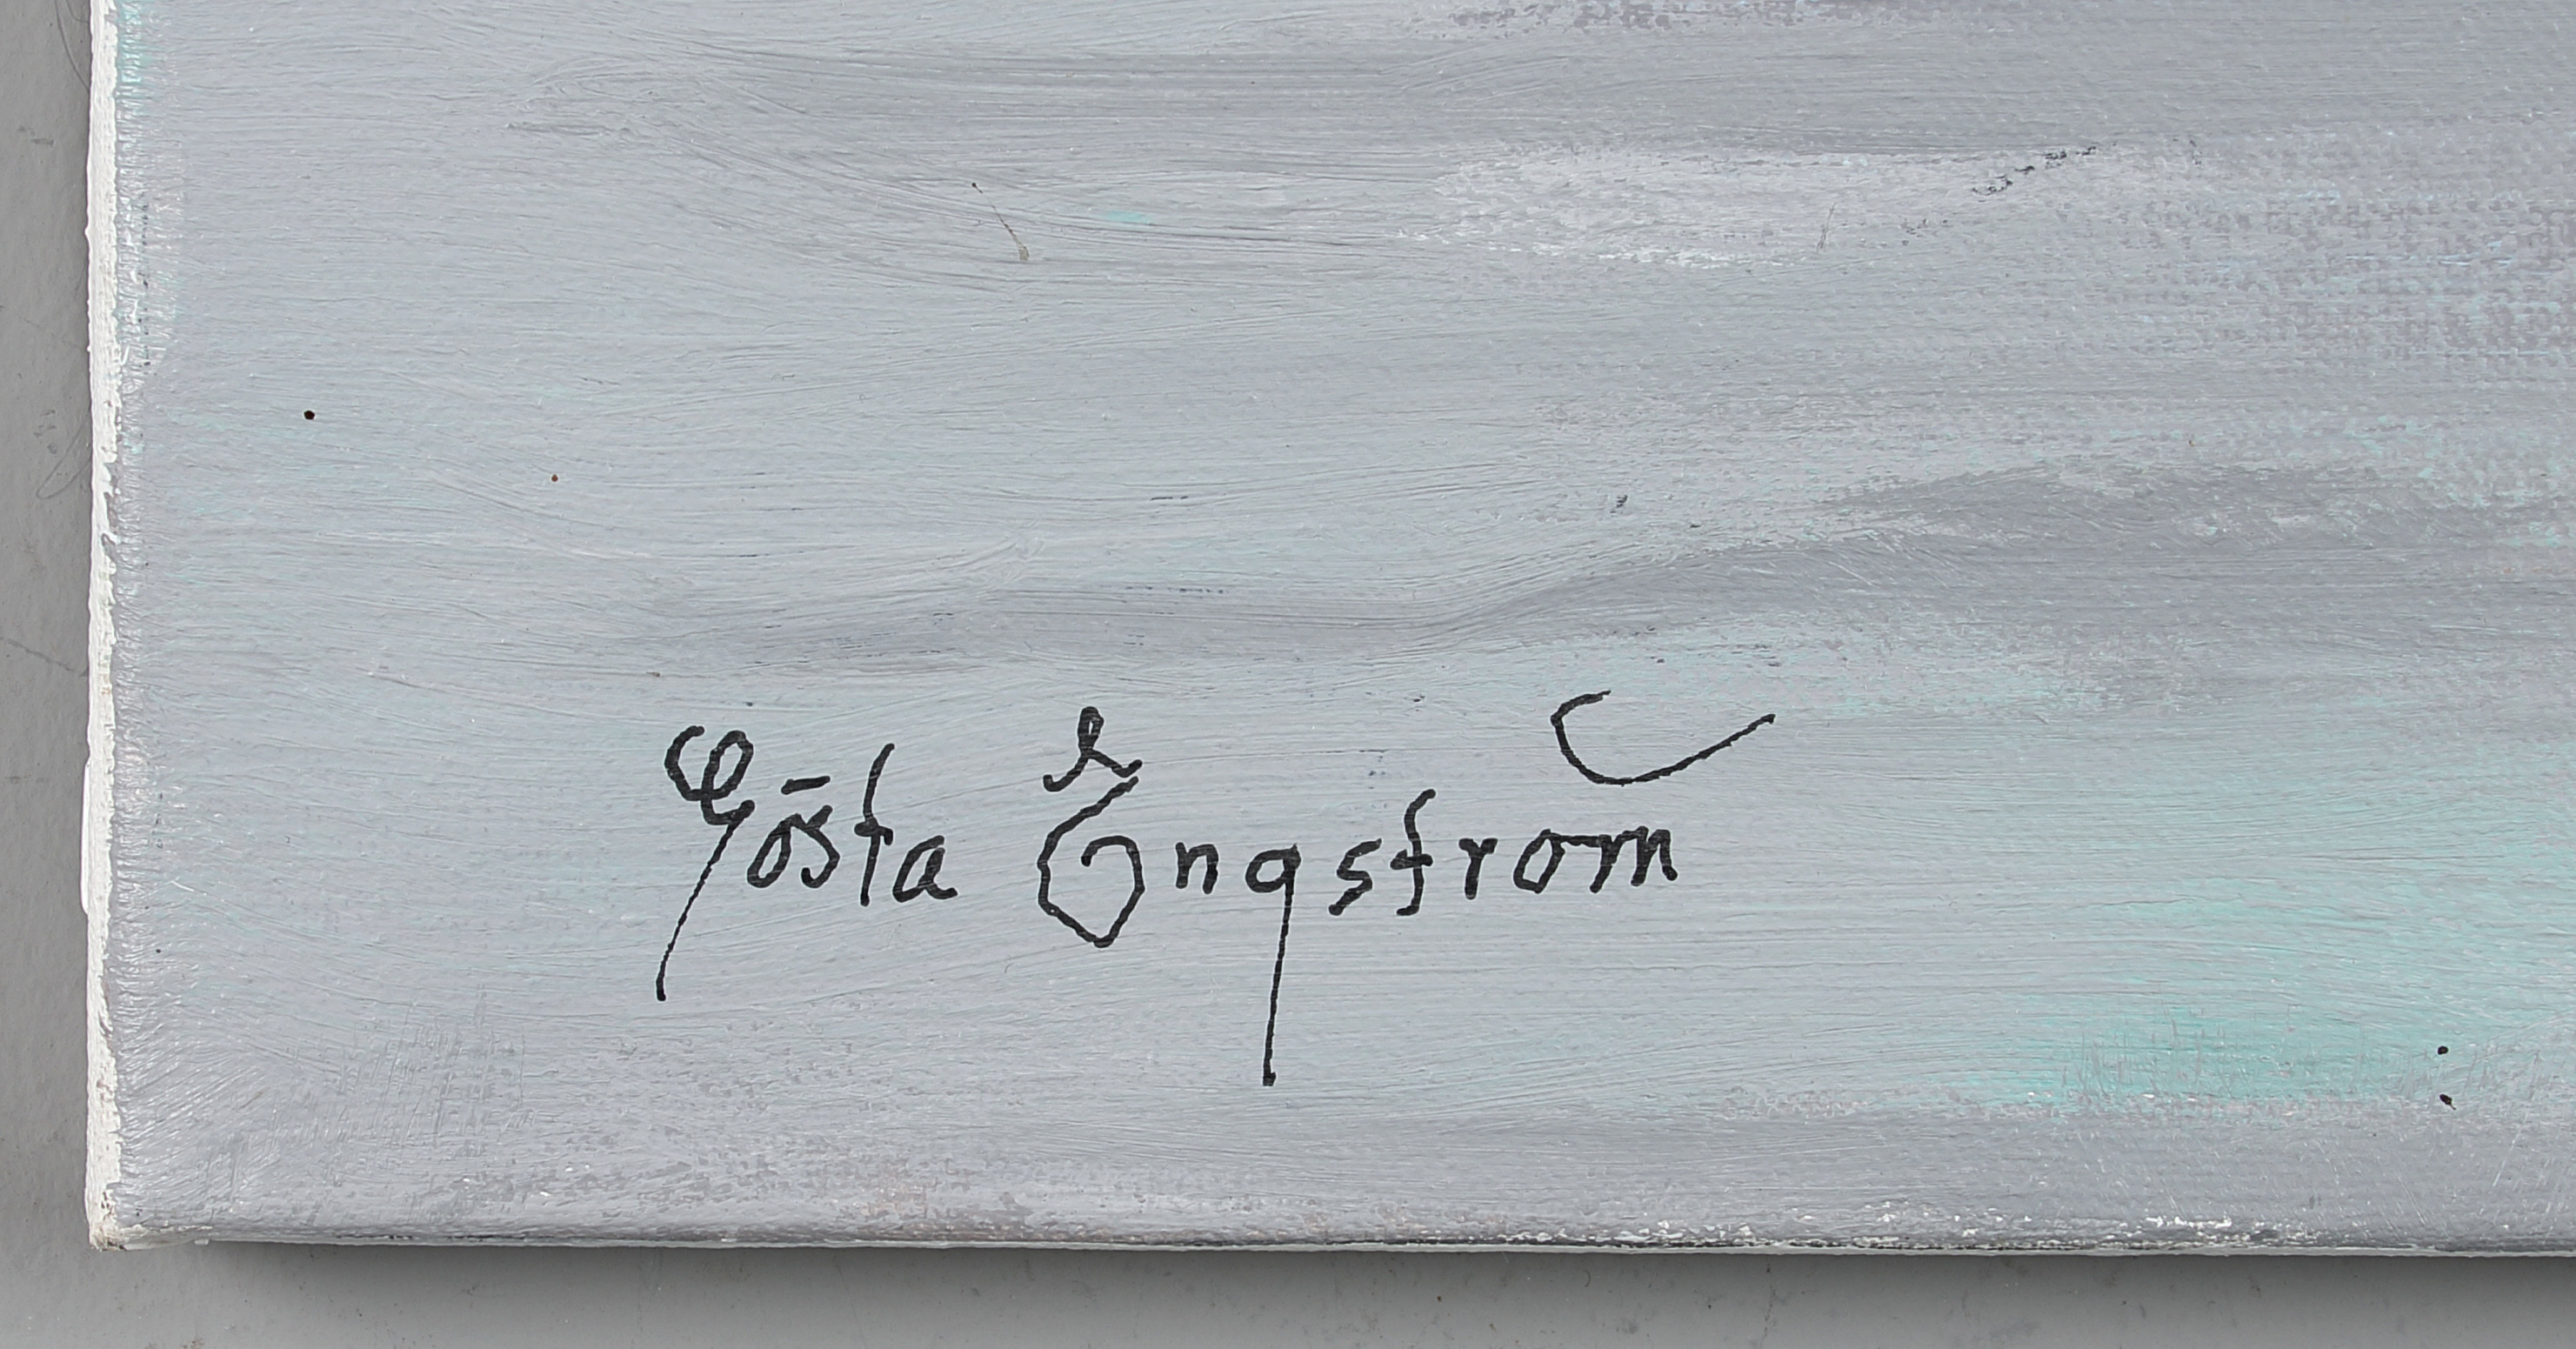 Gösta Engström